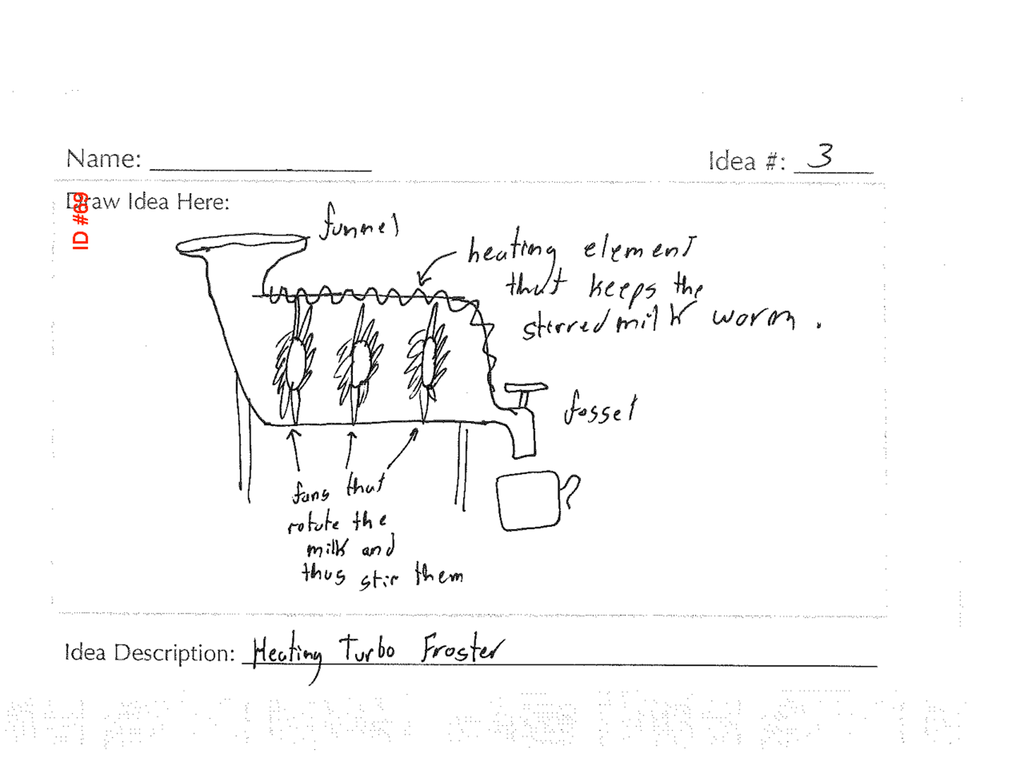 Name:
Idea #: 3
Draw Idea Here:
ID #69
funnel
heating element
that keeps the
stirred milk worm.
fosset
fans that
rotate the
milk and
thus stir them
Idea Description: Heating Turbo Froster